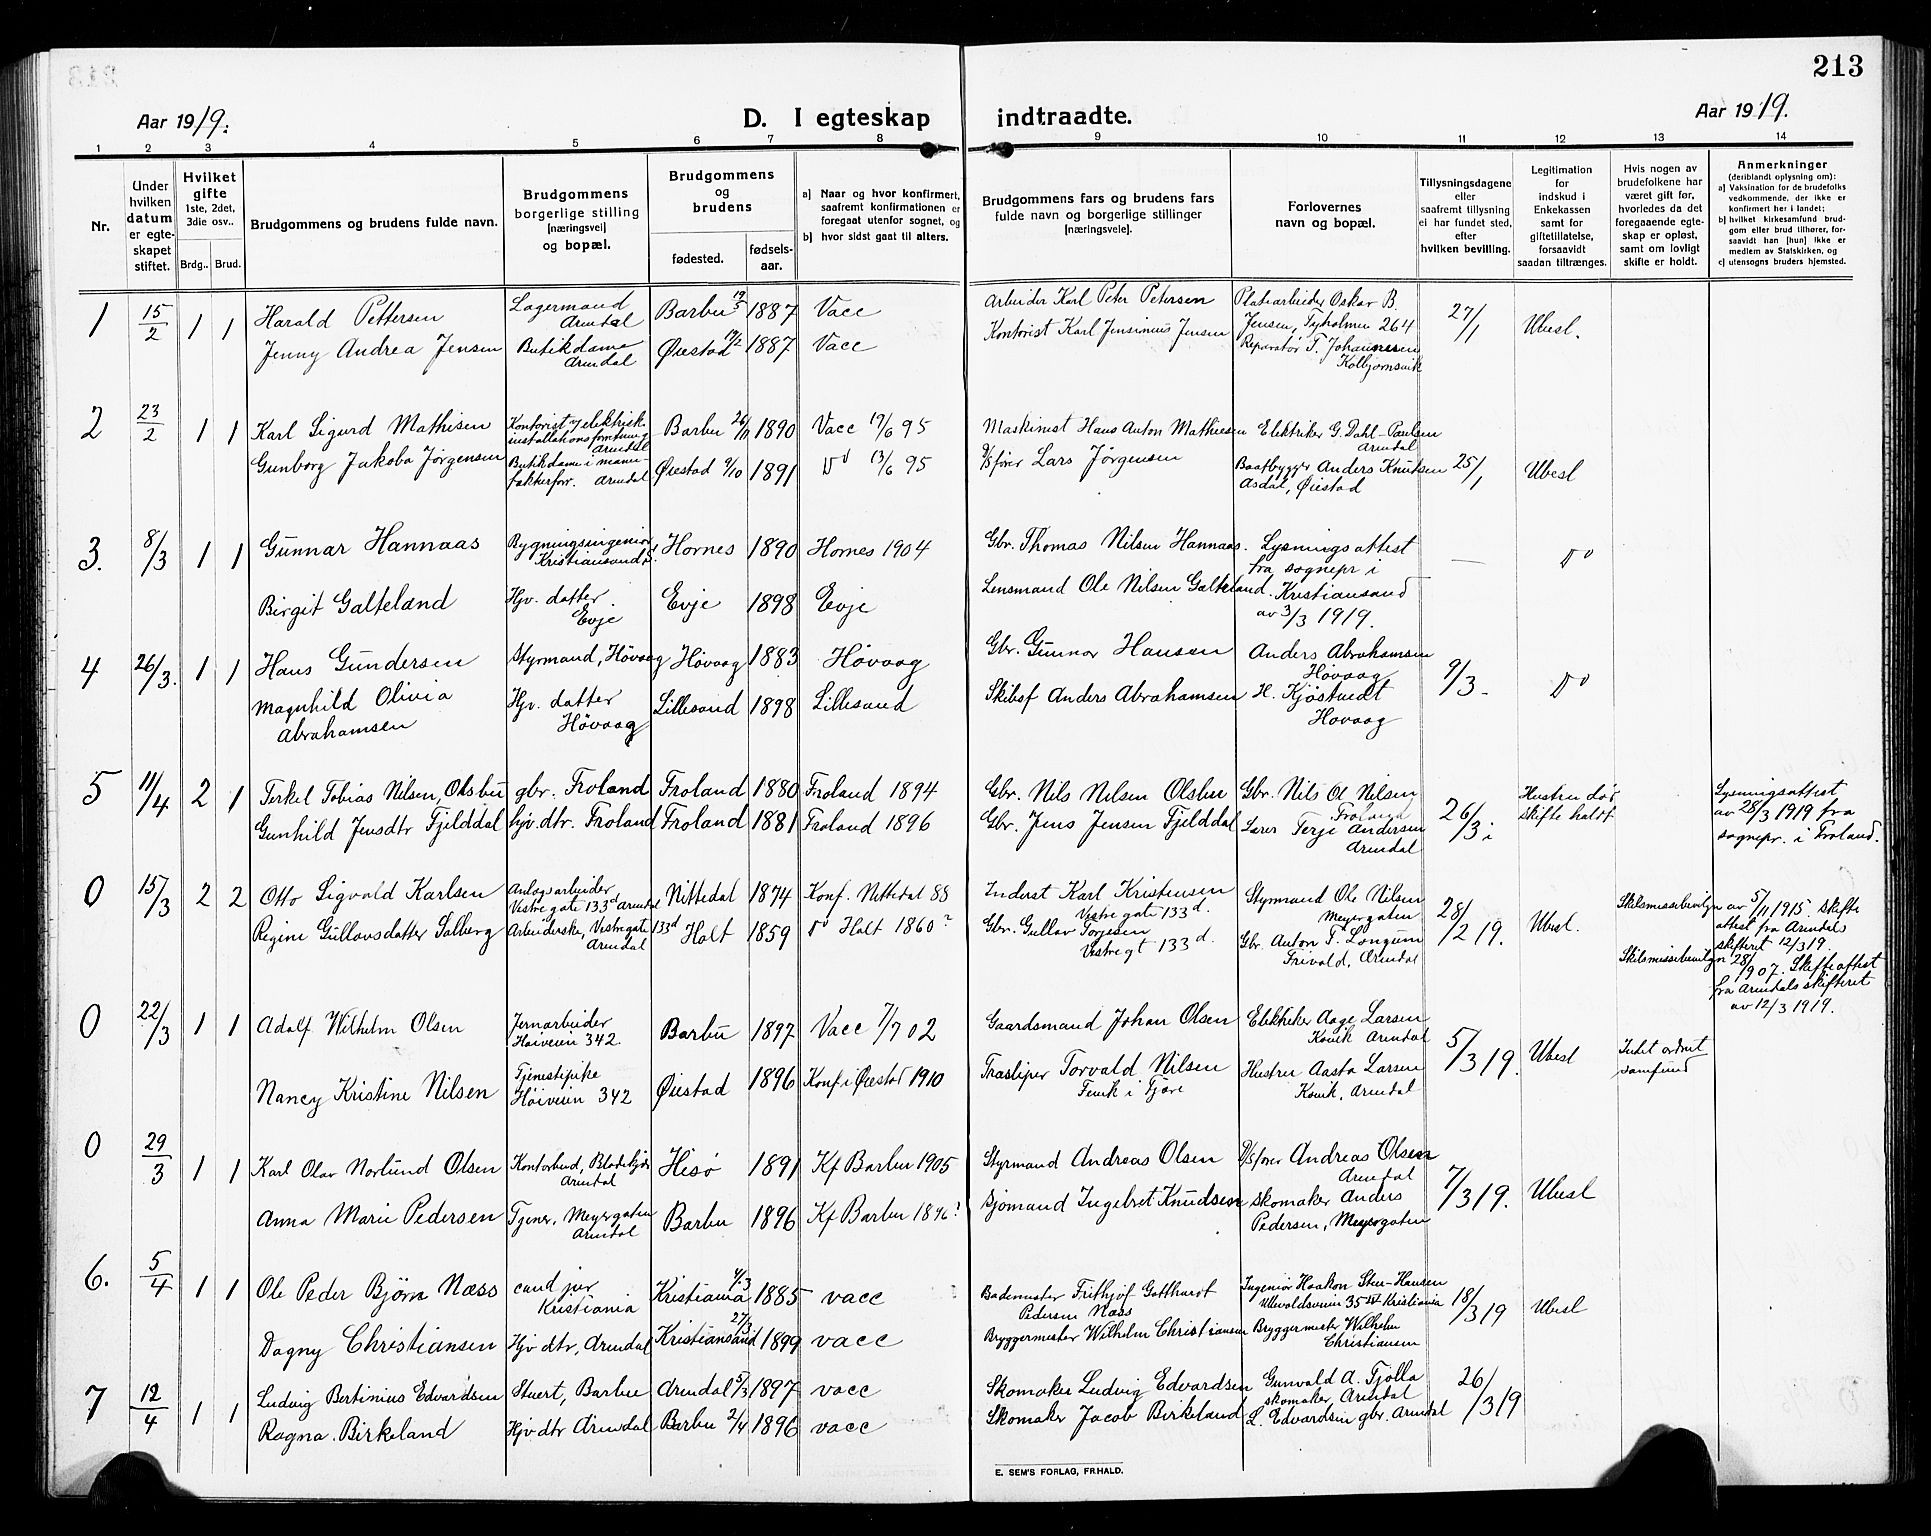 213
Aar 1919.
D. I egteskap indtraadte.
Aar 1919.
1 2 3 4 5 6 7 8 9 10 11 12 13 14
Nr.
Under hvilken datum er egteskapet stiftet.
Hvilket gifte 1ste, 2det, 3die osv..
Brdg.. Brud.
Brudgommens og brudens fulde navn.
Brudgommens borgerlige stilling (næringsvei) og bopæl.
Brudgommens og brudens
fødested. fødsels-aar.
a) Naar og hvor konfirmert, saafremt konfirmationen er foregaat utenfor sognet, og
b) hvor sidst gaat til alters.
Brudgommens fars og brudens fars fulde navn og borgerlige stillinger (næringsveie).
Forlovernes navn og bopæl.
Tillysningsdagene eller saafremt tillysning ei har fundet sted, efter hvilken bevilling.
Legitimation for indskud i Enkekassen samt for giftetillatelse, forsaavidt saadan tiltrænges.
Hvis nogen av brudefolkene har været gift før, hvorledes da det foregaaende egteskap er opløst, samt om lovligt skifte er holdt.
Anmerkninger (deriblandt oplysning om):
a) Vaksination for de brudefolks vedkommende, der ikke er konfirmert her i landet;
b) hvilket kirkesamfund brudgom eller brud tilhører, forsaavidt han [hun] ikke er medlem av Statskirken, og
c) utensogns bruders hjemsted.
1 15/2 1 1 Harald Pettersen Lagermand Arendal Barbu 19/5 1887 Vacc Arbeider Karl Peter Petersen Platearbeider Oskar B. Jensen, Tyholmen 264 27/1 Ubesl.
Jenny Andrea Jensen Butikdame Arendal Øiestad 1887 Vacc Kontorist Karl Jensinius Jensen Reparatør T. Johannesen Kolbjørnsvik
2 23/2 1 1 Karl Sigurd Mathisen Kontorist i elektrisk installationsforretning Arendal Barbu 26/11 1890 Vacc 17/6 95 Maskinist Hans Anton Mathiesen Elektriker G. Dahl-Paulsen Arendal 25/1 Ubesl
Gunborg Jakoba Jørgensen Butikdame i manufakturforr. Arendal Øiestad 9/10 1891 Do 13/6 95 D/S fører Lars Jørgensen Baatbygger Anders Knutsen Asdal, Øiestad
3. 8/3 1 1 Gunnar Hannaas Bygningsingeniør, Kristiansand S. Hornes 1890 Hornes 1904 Gbr. Thomas Nilsen Hannaas. Lysningsattest fra sognepr i Kristiansand av 3/3 1919. — Do
Birgit Galteland Hjv. datter. Evje Evje 1898 Evje Lensmand Ole Nilsen Galteland.
4 26/3. 1 1 Hans Gundersen Styrmand, Høvaag Høvaag 1883 Høvaag Gbr. Gunnar Hansen Anders Abrahamsen Høvaag 9/3 Do
Magnhild Olivia Abrahamsen Hjv. datter Høvaag Lillesand 1898 Lillesand Skibsf Anders Abrahamsen H. Kjøstvedt Høvaag
5 11/4 2 1 Terkel Tobias Nilsen, Olsbu gbr. Froland Froland 1880 Froland 1894 Gbr. Nils Nilsen Olsbu Gbr. Nils O Nilsen Froland 26/3 Hustru død skifte holdt Lysningsattest av 28/3 1919 fra sognepr. i Froland.
Gunhild Jensdtr Fjelddal hjv. dtr. Froland Froland 1881 Froland 1896 Gbr. Jens Jensen Fjelddal Lærer Terje Andersen Arendal
0 15/3 2 2 Otto Sigvald Karlsen Anlægsarbeider, Vestre gate 133d Arendal Nittedal 1874 Konf. Nittedal 88 Inderst Karl Kristensen Vestre gate 133d. Styrmand Ole Nilsen Meyergaten 28/2 19. Ubesl. Skilsmissebevilgn av 5/11 1915. skifte attest fra Arendals skifteret 12/3 19.
Regine Gullovsdatter Solberg Arbeiderske, Vestregate 133d Arendal Holt 1859 Do Holt 1860? Gbr. Gullov Torjesen Vestregt 133d. Gbr. Anton T. Longum Frivold, Arendal Skilsmissebevilgn 28/ 907. Skifteattest fra Arendals skifteret av 12/3 1919.
0 22/3 1 1 Adolf Wilhelm Olsen Jernarbeider Høiveien 342. Barbu 1897 Vacc 7/7 02 Gaardsmand Johan Olsen Elektriker Aage Larsen Arendal 5/3 19. Ubesl Intet ordnet samfund
Nancy Kristine Nilsen Tjenestepike Høiveien 342 Øiestad 1896 Konf. i Øiestad 1910 Træsliper Torvald Nilsen Hustru Aasta Larsen Arendal
0 29/3 1 1 Karl Olav Norlund Olsen Kontorbud, Arendal Hisø 1891 Kf Barbu 1905 Styrmand Andreas Olsen D/S fører Andreas Olsen Arendal 7/3 19. Ubesl
Anna Marie Pedersen Tjener, Meyergaten Arendal Barbu 1896 Kf Barbu 1896? Sjømand Ingebret Knudsen Skomaker Anders Pedersen, Meyergaten
6. 5/4 1 1 Ole Peder Bjørn Næss cand jur Kristiania Kristiania 1885 vacc Bademester Frithjof Gotthardt Pedersen Næss Ingeniør Haakon Sten-Hansen Ullevoldsveien 35 Kristiania 18/3 19 Ubesl
Dagny Christiansen Hjv dtr, Arendal Kristiansand 27/3 1899 vacc Bryggermester Wilhelm Christiansen Bryggermester Wilhelm Christiansen
7 12/4 1 1 Ludvig Bertinius Edvardsen Stuert, Barbu Arendal 5/3 1897 vacc Skomaker Ludvig Edvardsen Gunvald A. Fjolla skomaker Arendal 26/3 19
Ragna Birkeland Hjv dtr Arendal Barbu 2/4 1896 vacc Skomaker Jacob Birkeland L. Edvardsen gbr. Arendal
E. SEM'S FORLAG, FR.HALD.